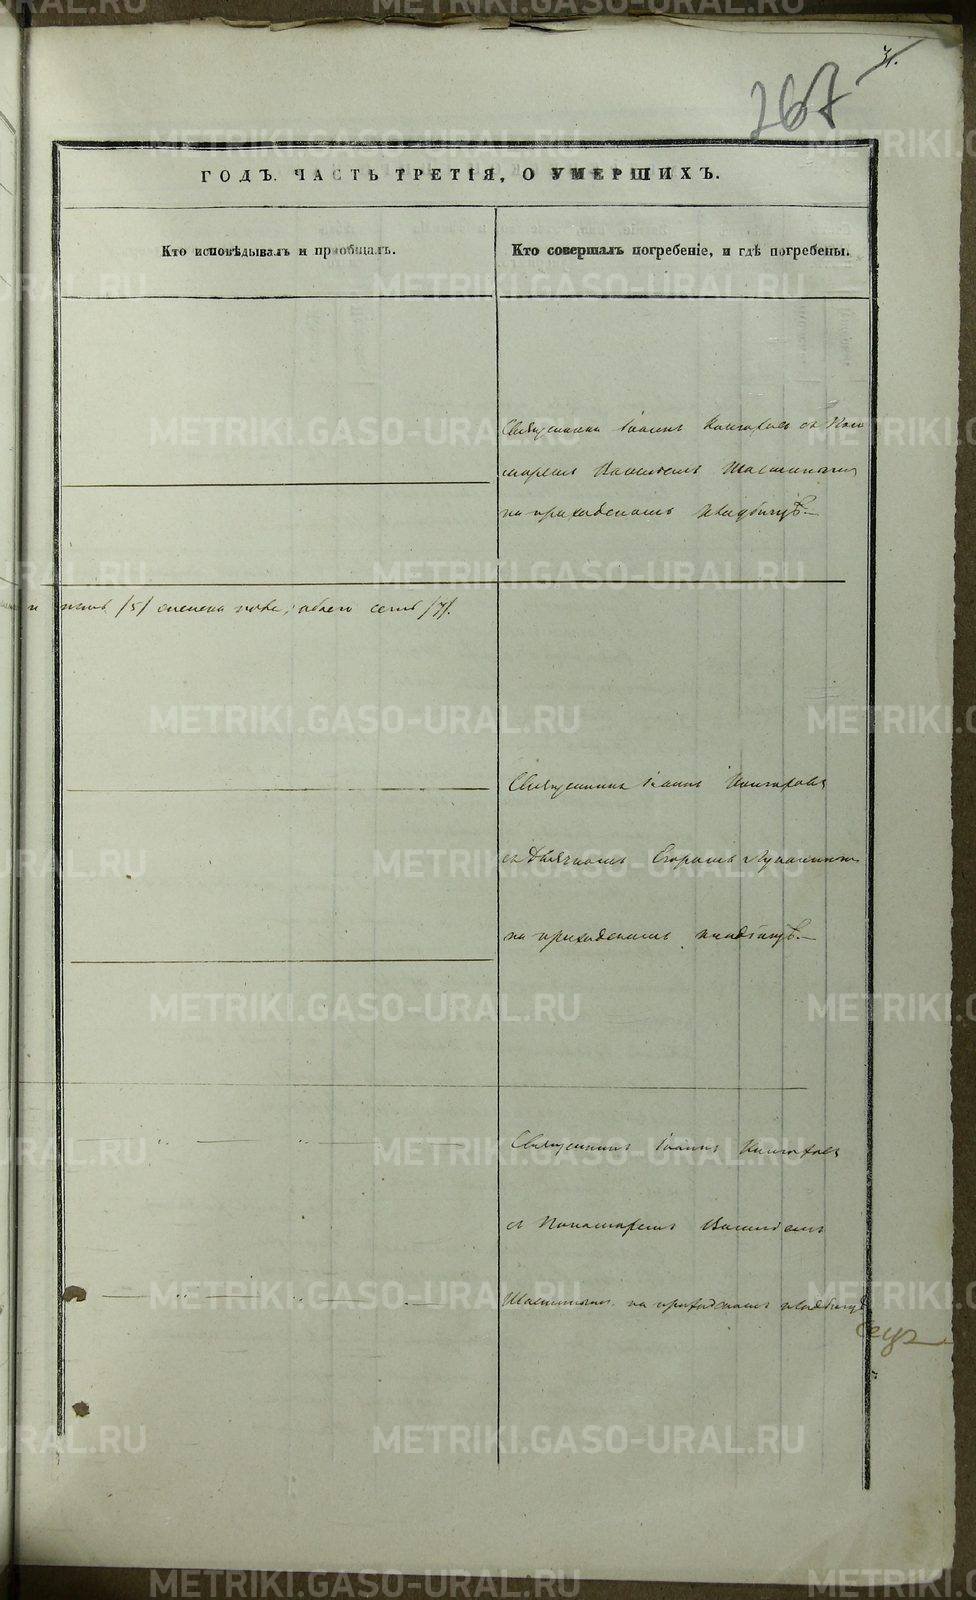 31.
267
ГОДЪ. ЧАСТЬ ТРЕТІЯ, О УМЕРШИХЪ.
Кто исповѣдывалъ и пріобщалъ.
Кто совершалъ погребеніе, и гдѣ погребены.
Священникъ Іоаннъ съ Поно
маремъ Василіемъ
на приходскомъ кладбищѣ.—
пять /5/ женска пола, обоего семь /7/.
Священникъ Іоаннъ
съ Дьячкомъ Егоромъ
на приходскомъ кладбищѣ.—
Священникъ Іоаннъ
съ Пономаремъ Василіемъ
на приходскомъ кладбищѣ
METRIKI.GASO-URAL.RU